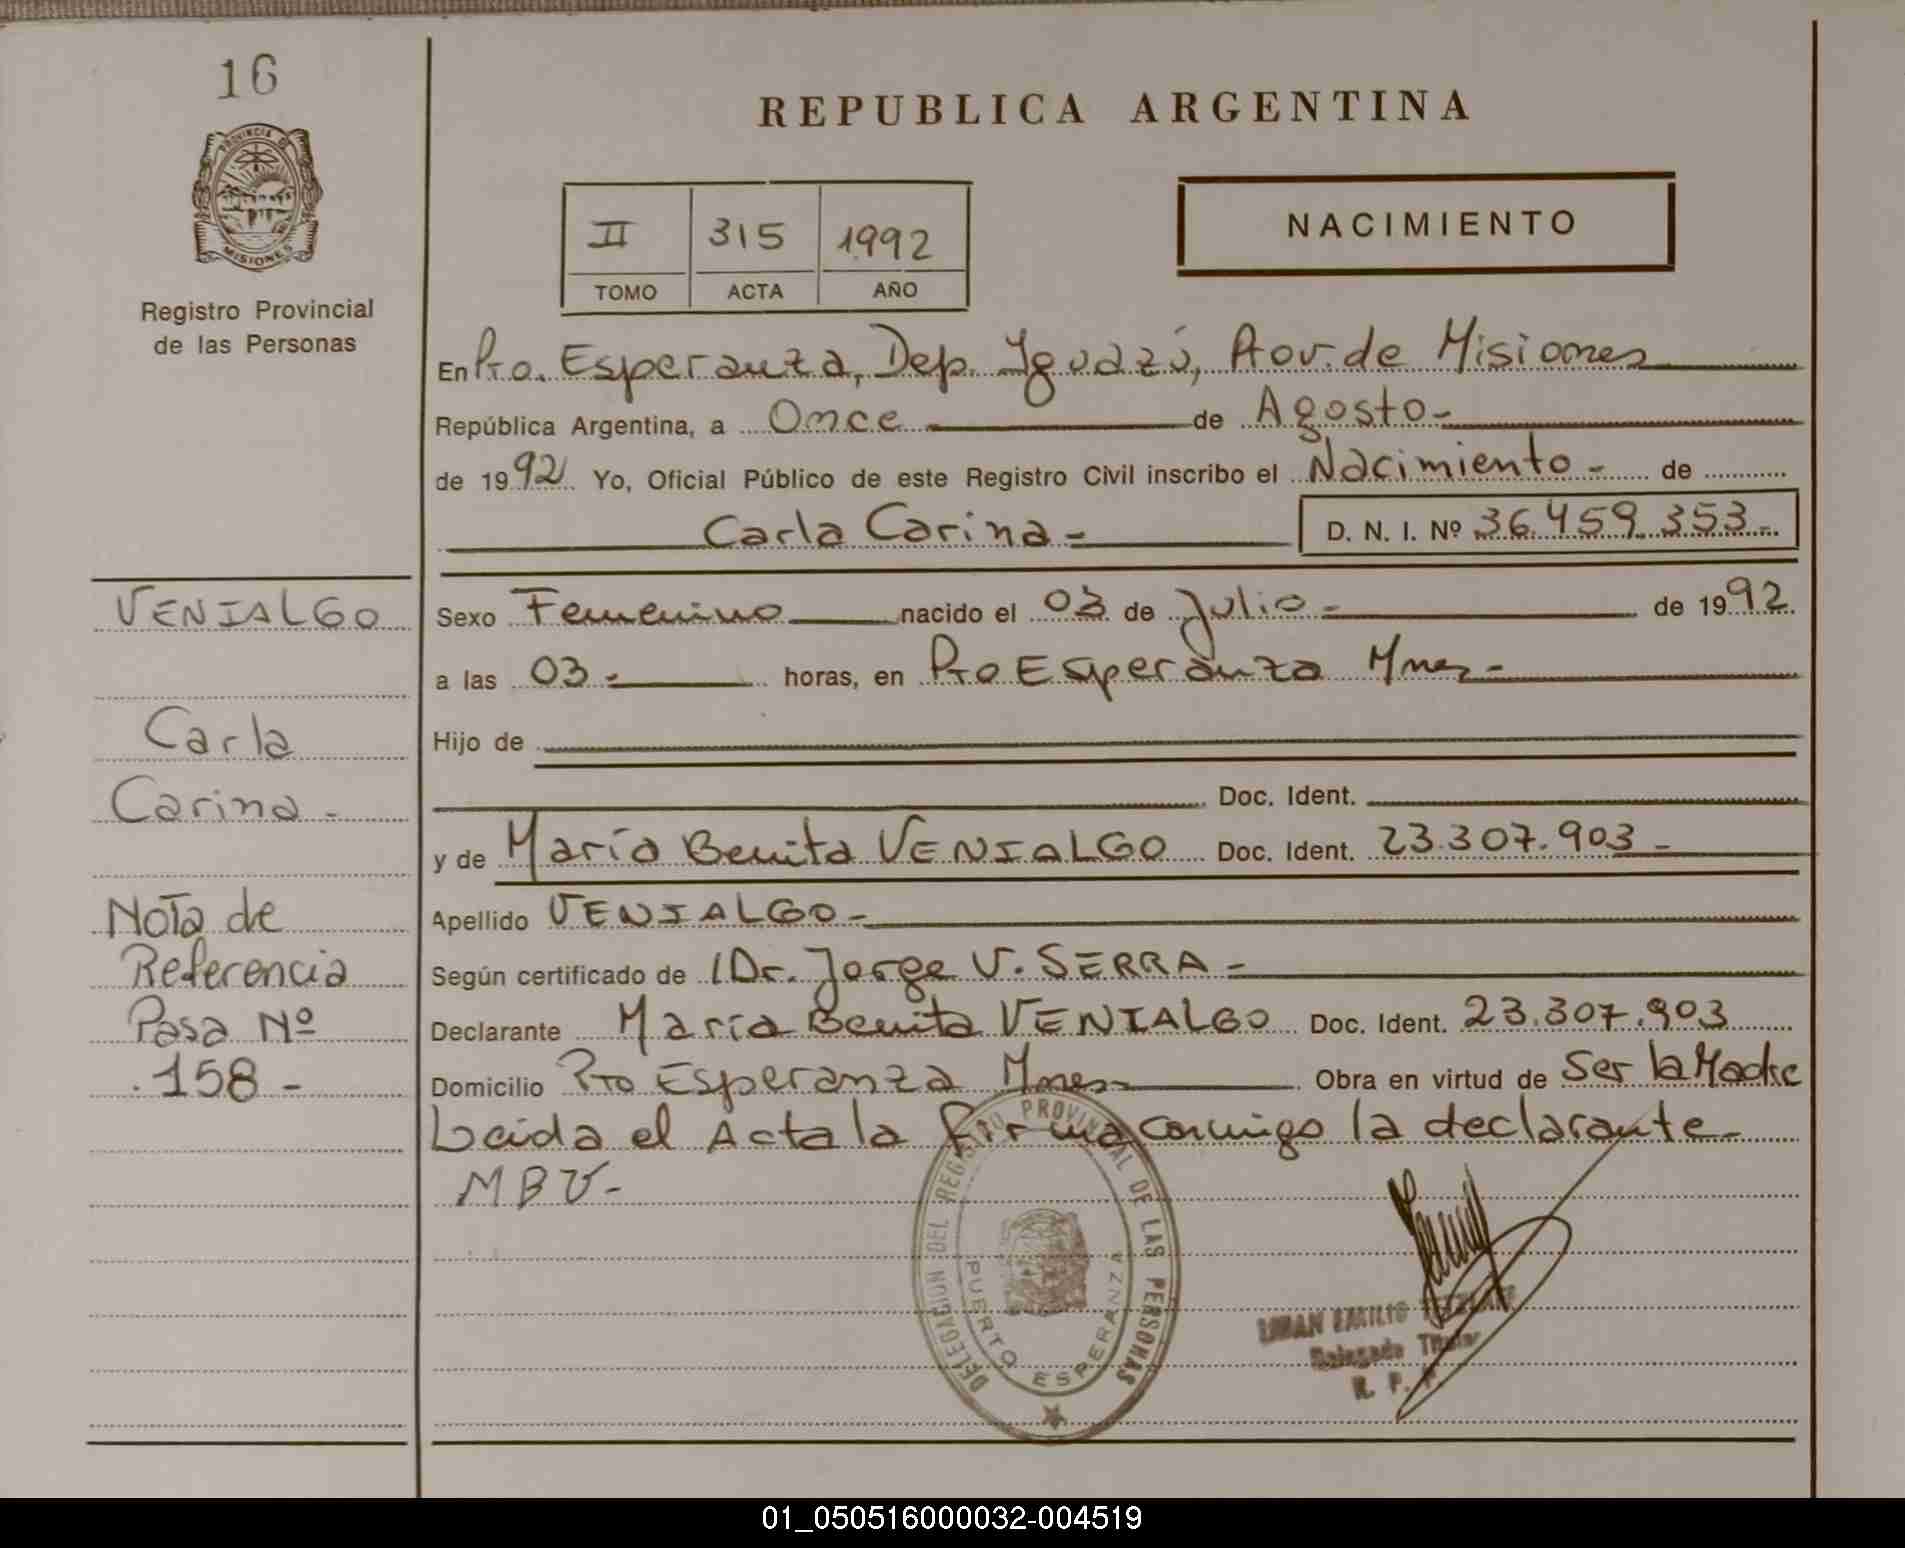 16
PROVINCIA DE
MISIONES
Registro Provincial
de las Personas
REPUBLICA ARGENTINA
NACIMIENTO
II 315 1992
TOMO ACTA AÑO
En Pto. Esperanza, Dep. Iguazú, Prov. de Misiones
República Argentina, a Once de Agosto-
de 1992 Yo, Oficial Público de este Registro Civil inscribo el Nacimiento - de
Carla Carina - D. N. I. Nº 36.459.353-
Sexo Femenino nacido el 03 de Julio - de 1992
a las 03 - horas, en Pto Esperanza Mnes -
Hijo de
Doc. Ident.
y de María Benita VENIALGO Doc. Ident. 23.307.903 -
Apellido VENIALGO -
Según certificado de Dr. Jorge V. SERRA -
Declarante María Benita VENIALGO Doc. Ident. 23.307.903
Domicilio Pto Esperanza Mnes- Obra en virtud de Ser la Madre
Leida el Acta la firma conmigo la declarante-
MBV-
VENIALGO
Carla
Carina -
Nota de
Referencia
Pasa Nº
158 -
DELEGACION DEL REGISTRO PROVINCIAL DE LAS PERSONAS
PUERTO ESPERANZA
EMILIO
Delegado Titular
R. P. P.
01_050516000032-004519